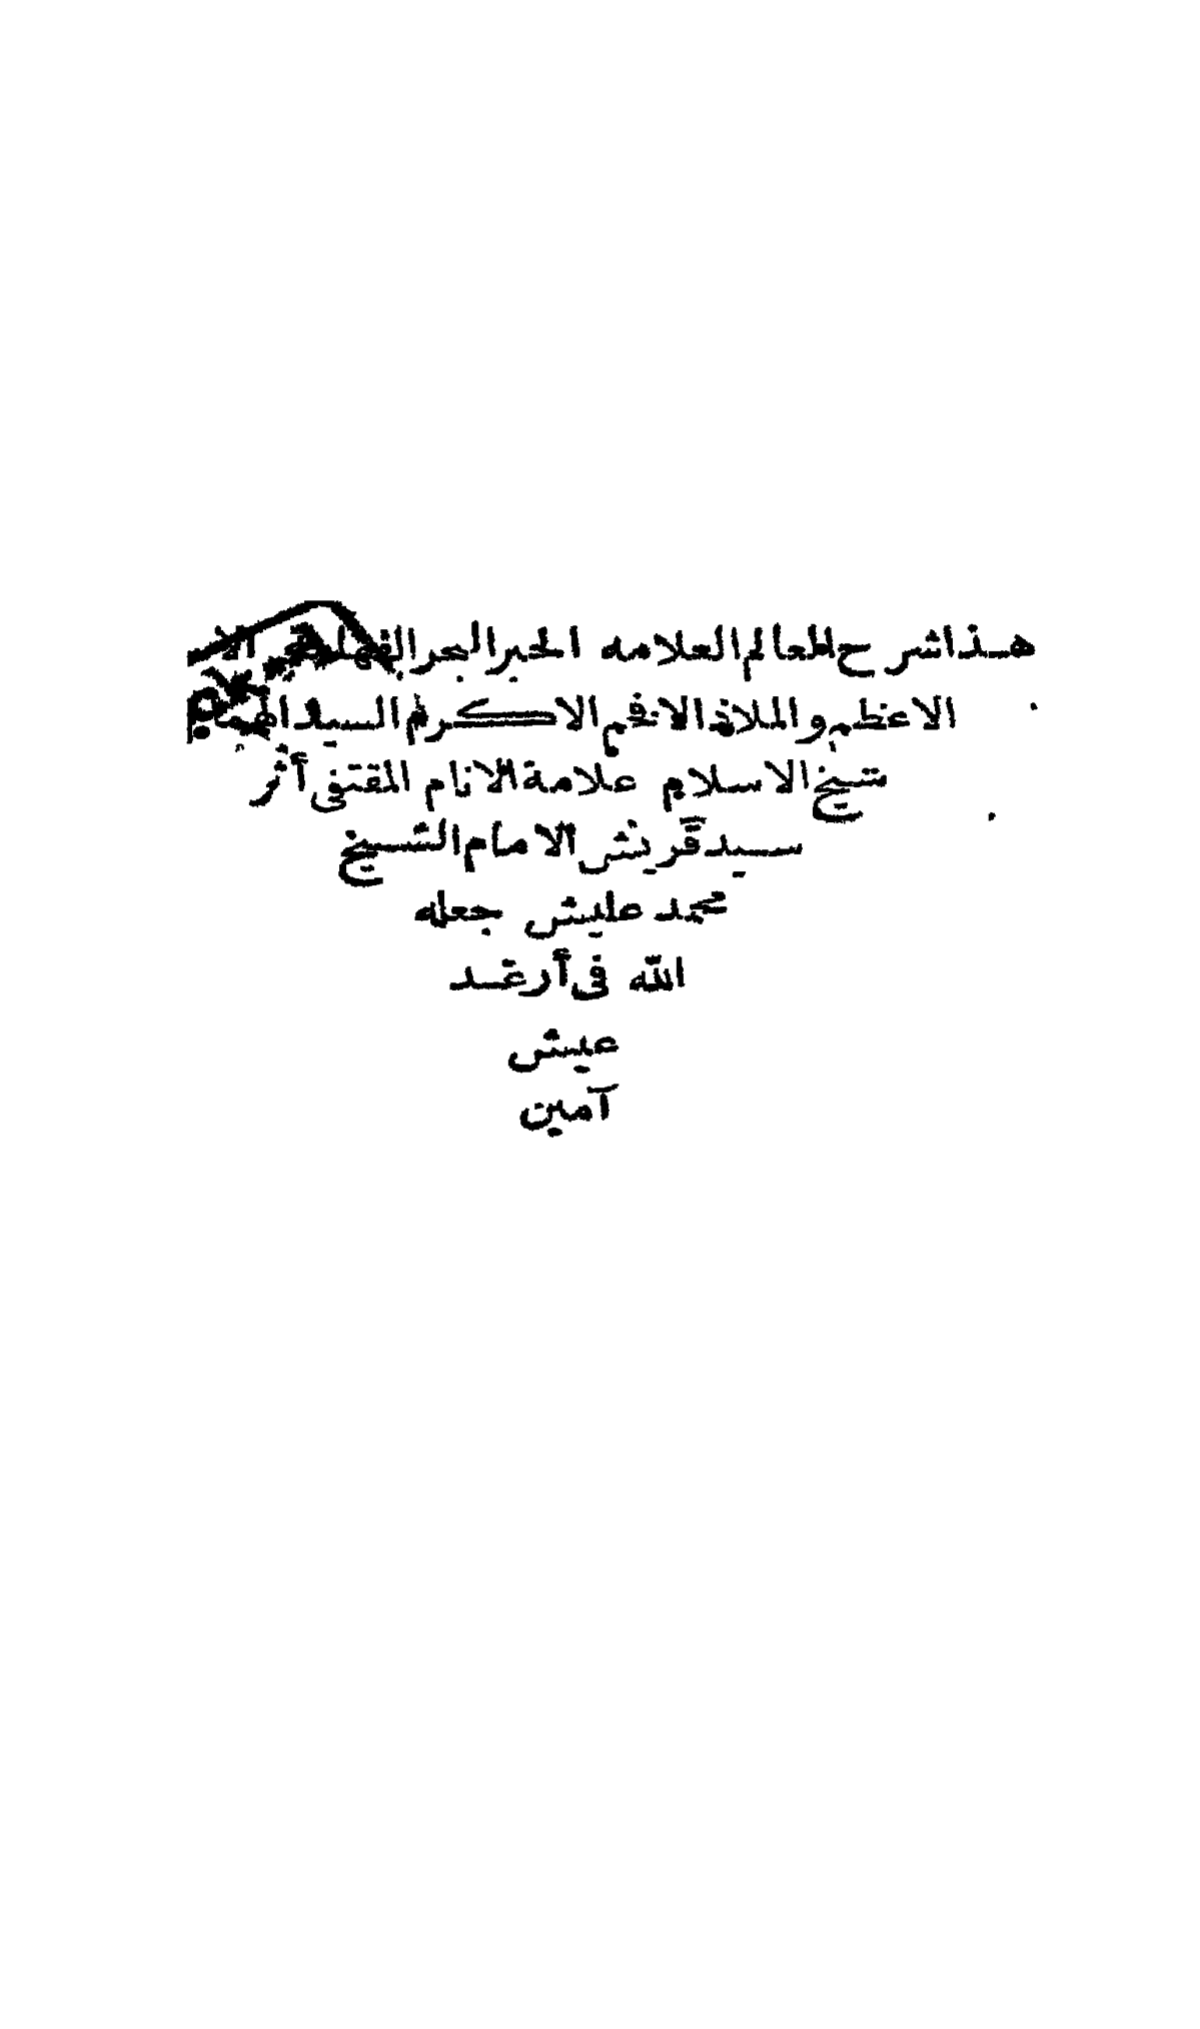 هذا شرح العالم العلامه الحبر البحر الفهامه
الاعظم والملاذ الافخم الاكرم السيد الهمام
شيخ الاسلام علامة الانام المقتفى أثر
سيد قريش الامام الشيخ
محمد عليش جعله
الله فى أرغد
عيش
آمين